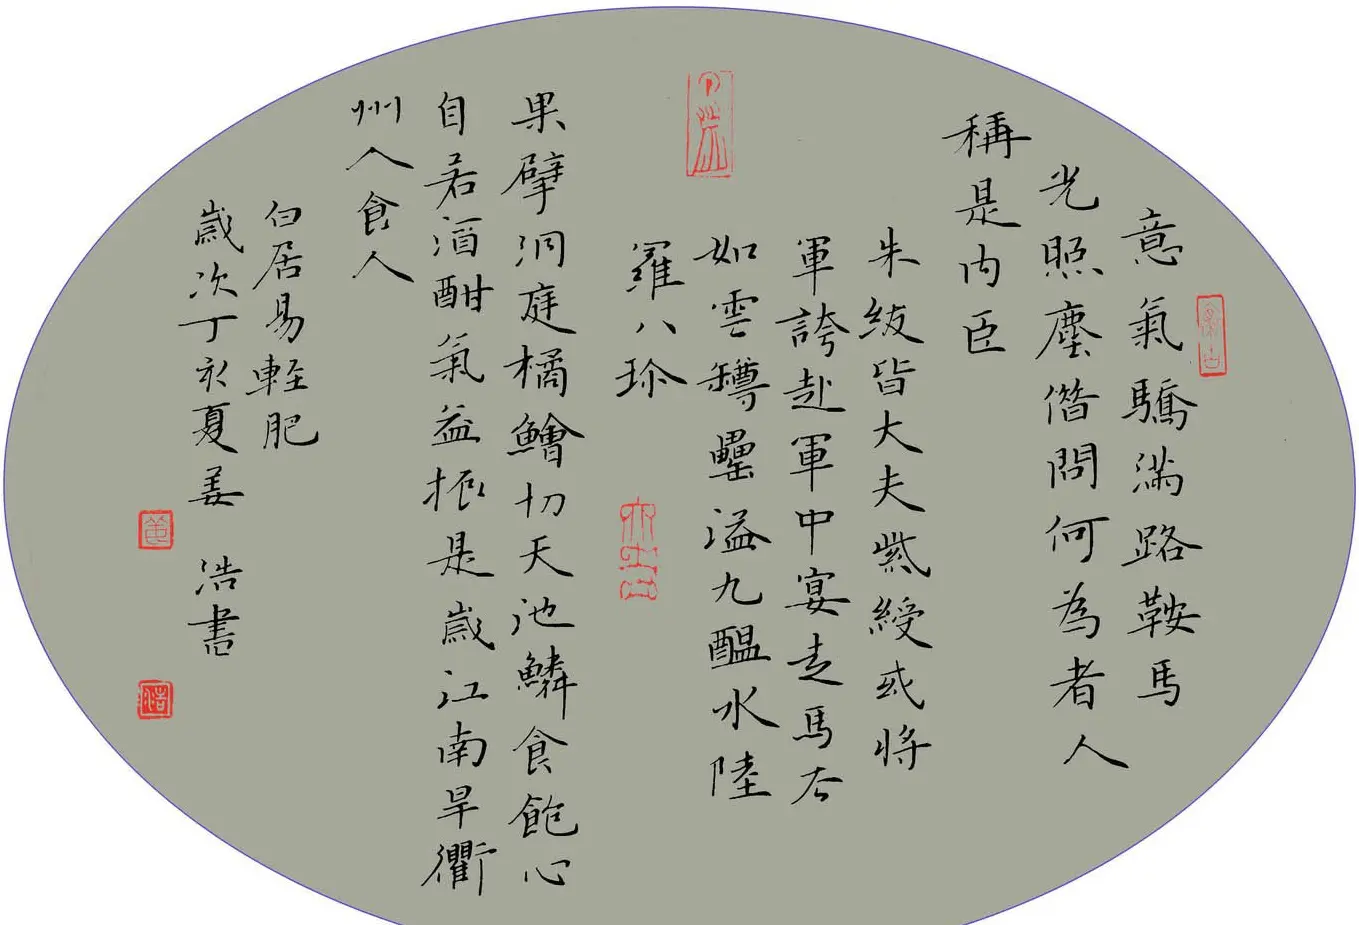 意氣驕滿路鞍馬
光照塵借問何為者人
稱是内臣
朱紱皆大夫紫綬或將
軍誇赴軍中宴走馬去
如雲罇罍溢九醞水陸
羅八珍
果擘洞庭橘鱠切天池鱗食飽心
自若酒酣氣益振是歲江南旱衢
州人食人
白居易輕肥
歲次丁亥夏姜 浩書
姜
浩